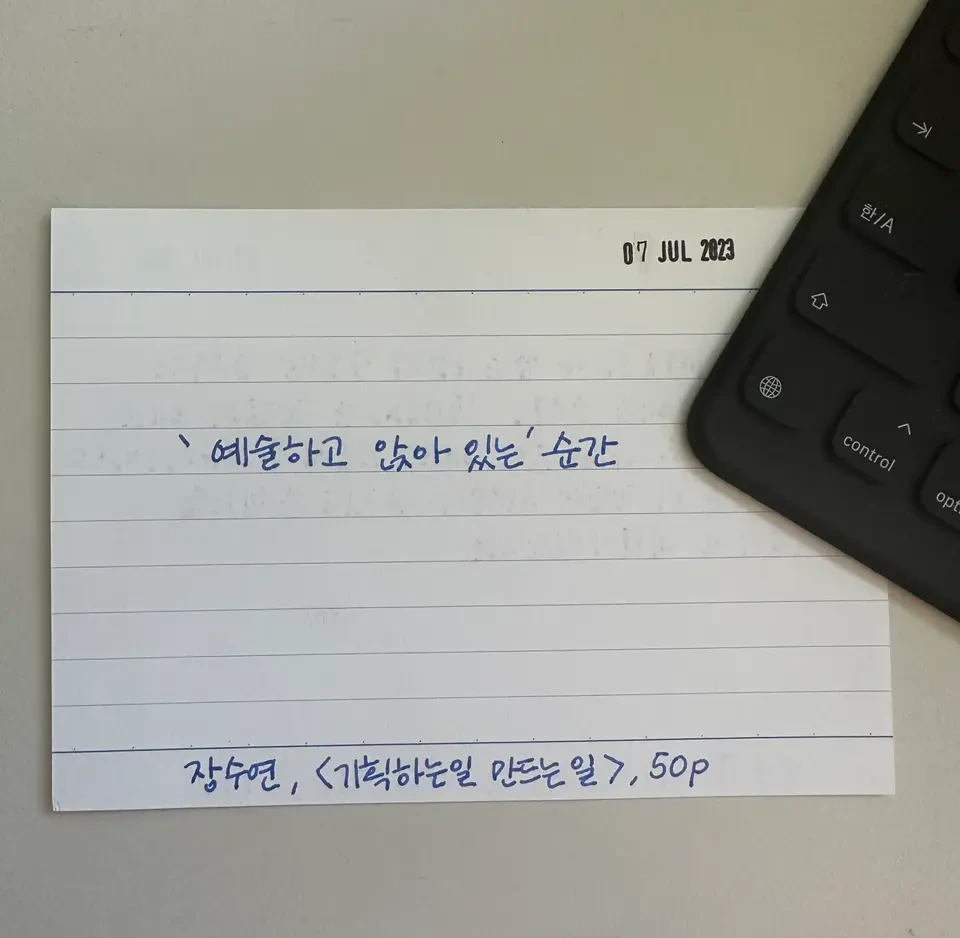 07 JUL 2023
한/A
control
opt
‘예술하고 앉아 있는’ 순간
장수연, <기획하는일 만드는일>, 50p